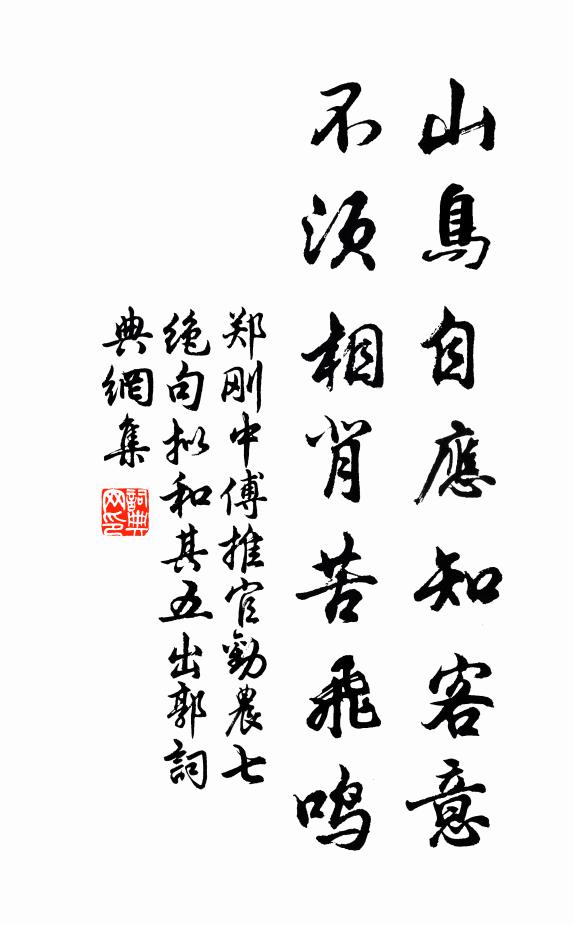 山鳥自應知客意
不須相背苦飛鳴
郑刚中傅推官勸農七
絶句拟和其五出郭詞
典網集
詞典網印